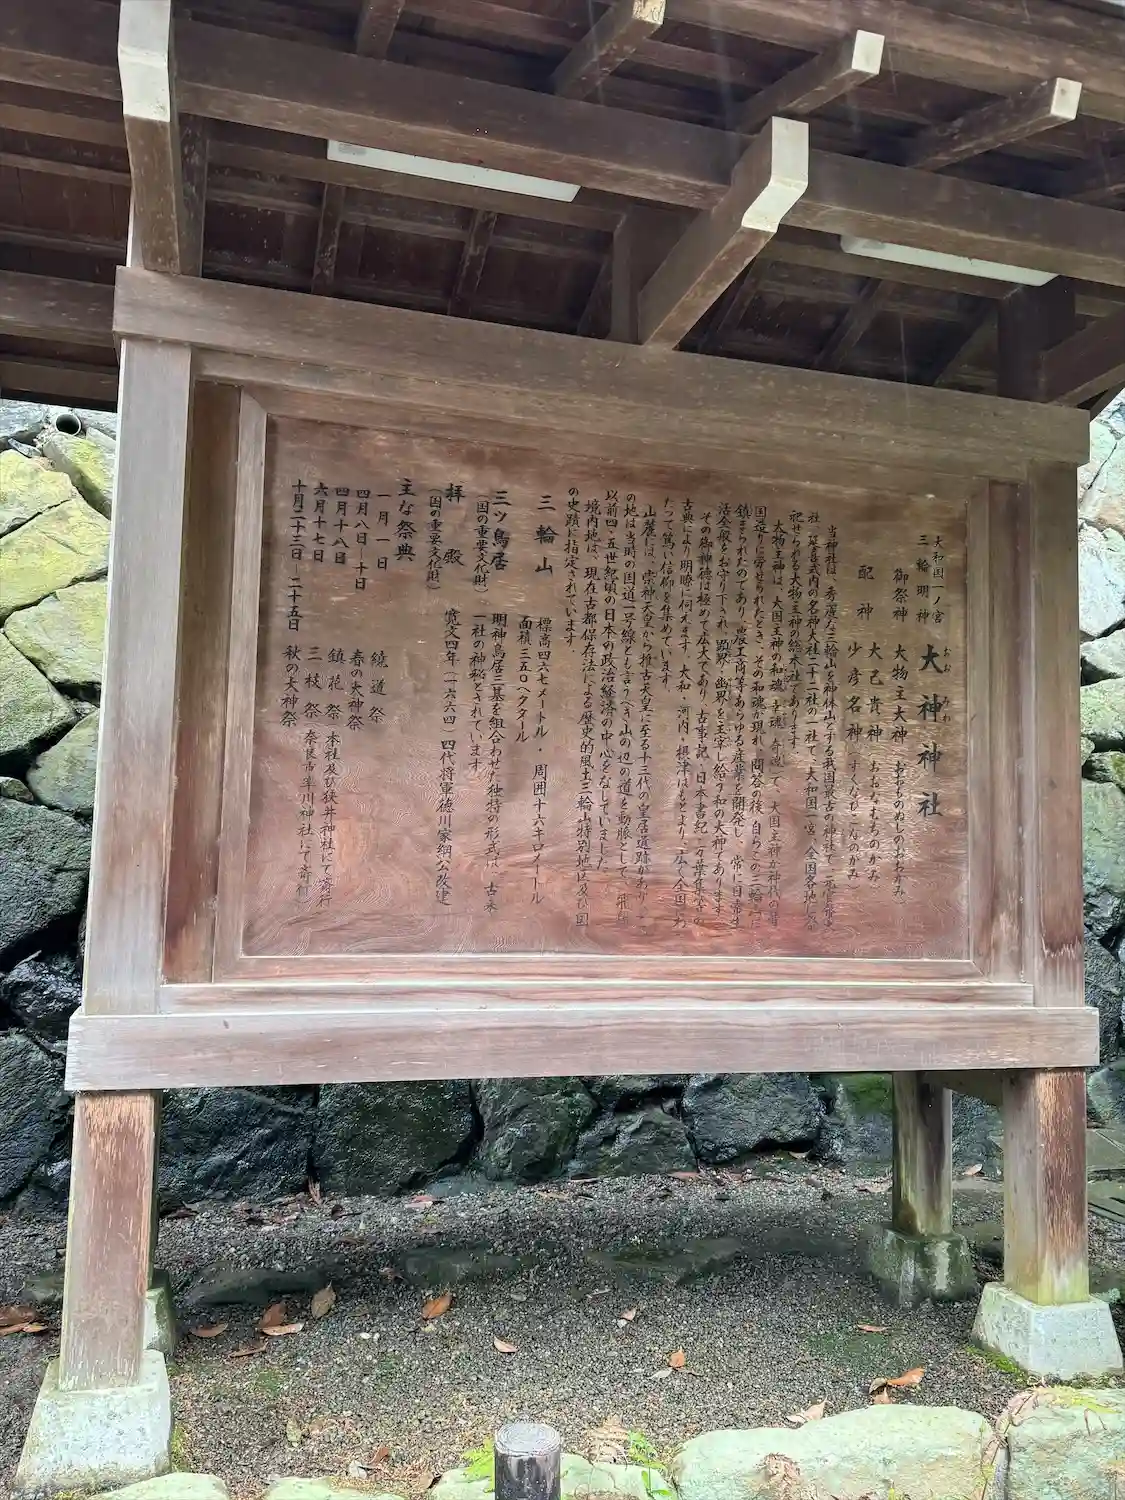 大和国一ノ宮
三輪明神
大神神社
おおみわ
御祭神 大物主大神 (おおものぬしのおおかみ)
配神 大己貴神 (おおなむちのかみ)
少彦名神 (すくなひこなのかみ)
当神社は、秀麗な三輪山を神体山とする我国最古の神社で、元官幣大
社・延喜式内の名神大社・二十二社の一社で、大和国一宮、全国各地に
祀せられる大物主神の総本社であります。
大物主神は、大国主神の和魂(幸魂・奇魂)で、大国主神が神代の昔
国造りに労せられたとき、その和魂が現れ、問答の後、自らこの三輪山に
鎮まられたのであり、農工商等あらゆる産業を開発し、常に日常生
活全般をお守り下され、顕界・幽界を主宰し給う和の大神であります。
その御神徳は極めて広大であり、古事記・日本書紀・万葉集等の
古典により明瞭に伺えます。大和・河内・摂津はもとより、広く全国にわ
たって篤い信仰を集めています。
山麓には、崇神天皇から推古天皇に至る十三代の皇居遺跡があり、
の地は当時の国道一号線とも言うべき山の辺の道を動脈として、飛鳥
以前四・五世紀頃の日本の政治経済の中心をなしていました。
境内地は、現在古都保存法による歴史的風土三輪山特別地区及び国
の史蹟に指定されています。
三輪山 標高四六七メートル・周囲十六キロメートル
面積三五〇ヘクタール
三ツ鳥居 明神鳥居三基を組合わせた独特の形式は、古来
(国の重要文化財) 一社の神秘とされています。
拝殿 寛文四年(一六六四)四代将軍徳川家綱公改建
(国の重要文化財)
主な祭典
一月一日 繞道祭
四月八日―十日 春の大神祭
四月十八日 鎮花祭 (本社及び狭井神社にて斎行)
六月十七日 三枝祭 (奈良市率川神社にて斎行)
十月二十三日―二十五日 秋の大神祭